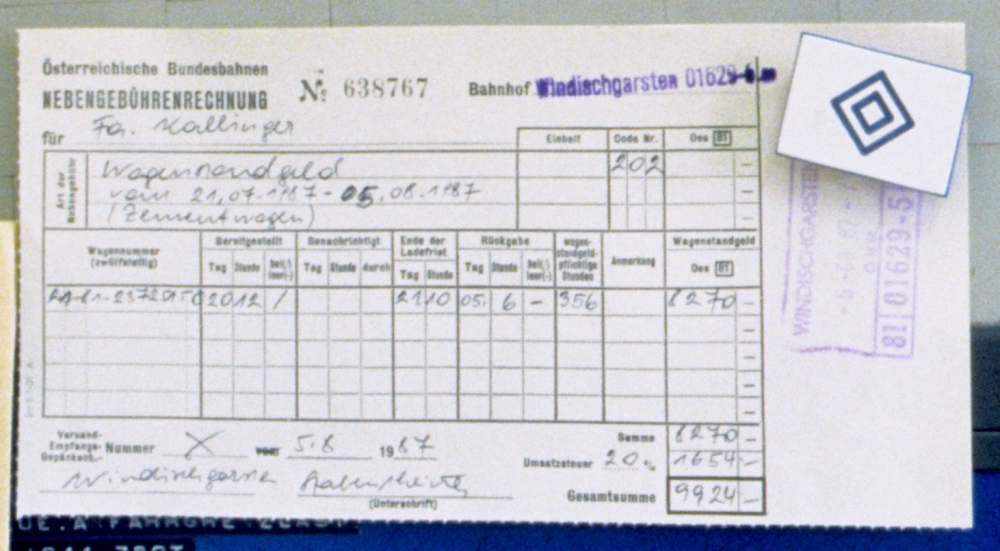 Österreichische Bundesbahnen
NEBENGEBÜHRENRECHNUNG
№ 638767
Bahnhof Windischgarsten 01629-5
für Fa. Kallinger
Einheit Code Nr. Oes 81
Art der Nebengebühr
Wagenstandgeld 202 –
vom 21.07.1987 - 05.08.1987 –
(Zementwagen) –
Wagennummer (zwölfstellig) Bereitgestellt Benachrichtigt Ende der Ladefrist Rückgabe wagen-standgeld-pflichtige Stunden Anmerkung Wagenstandgeld Oes 81
Tag Stunde Tag Stunde durch Tag Stunde Tag Stunde
20 12 / 21 10 05. 6 – 356 8270 –
Versand- Empfangs- Gepäcksch.- Nummer X vom 5.8 1987
Summe 8270 –
Umsatzsteuer 20 % 1654 –
Windischgarsten
(Unterschrift)
Gesamtsumme 9924 –
WINDISCHGARSTEN
81 01629-5